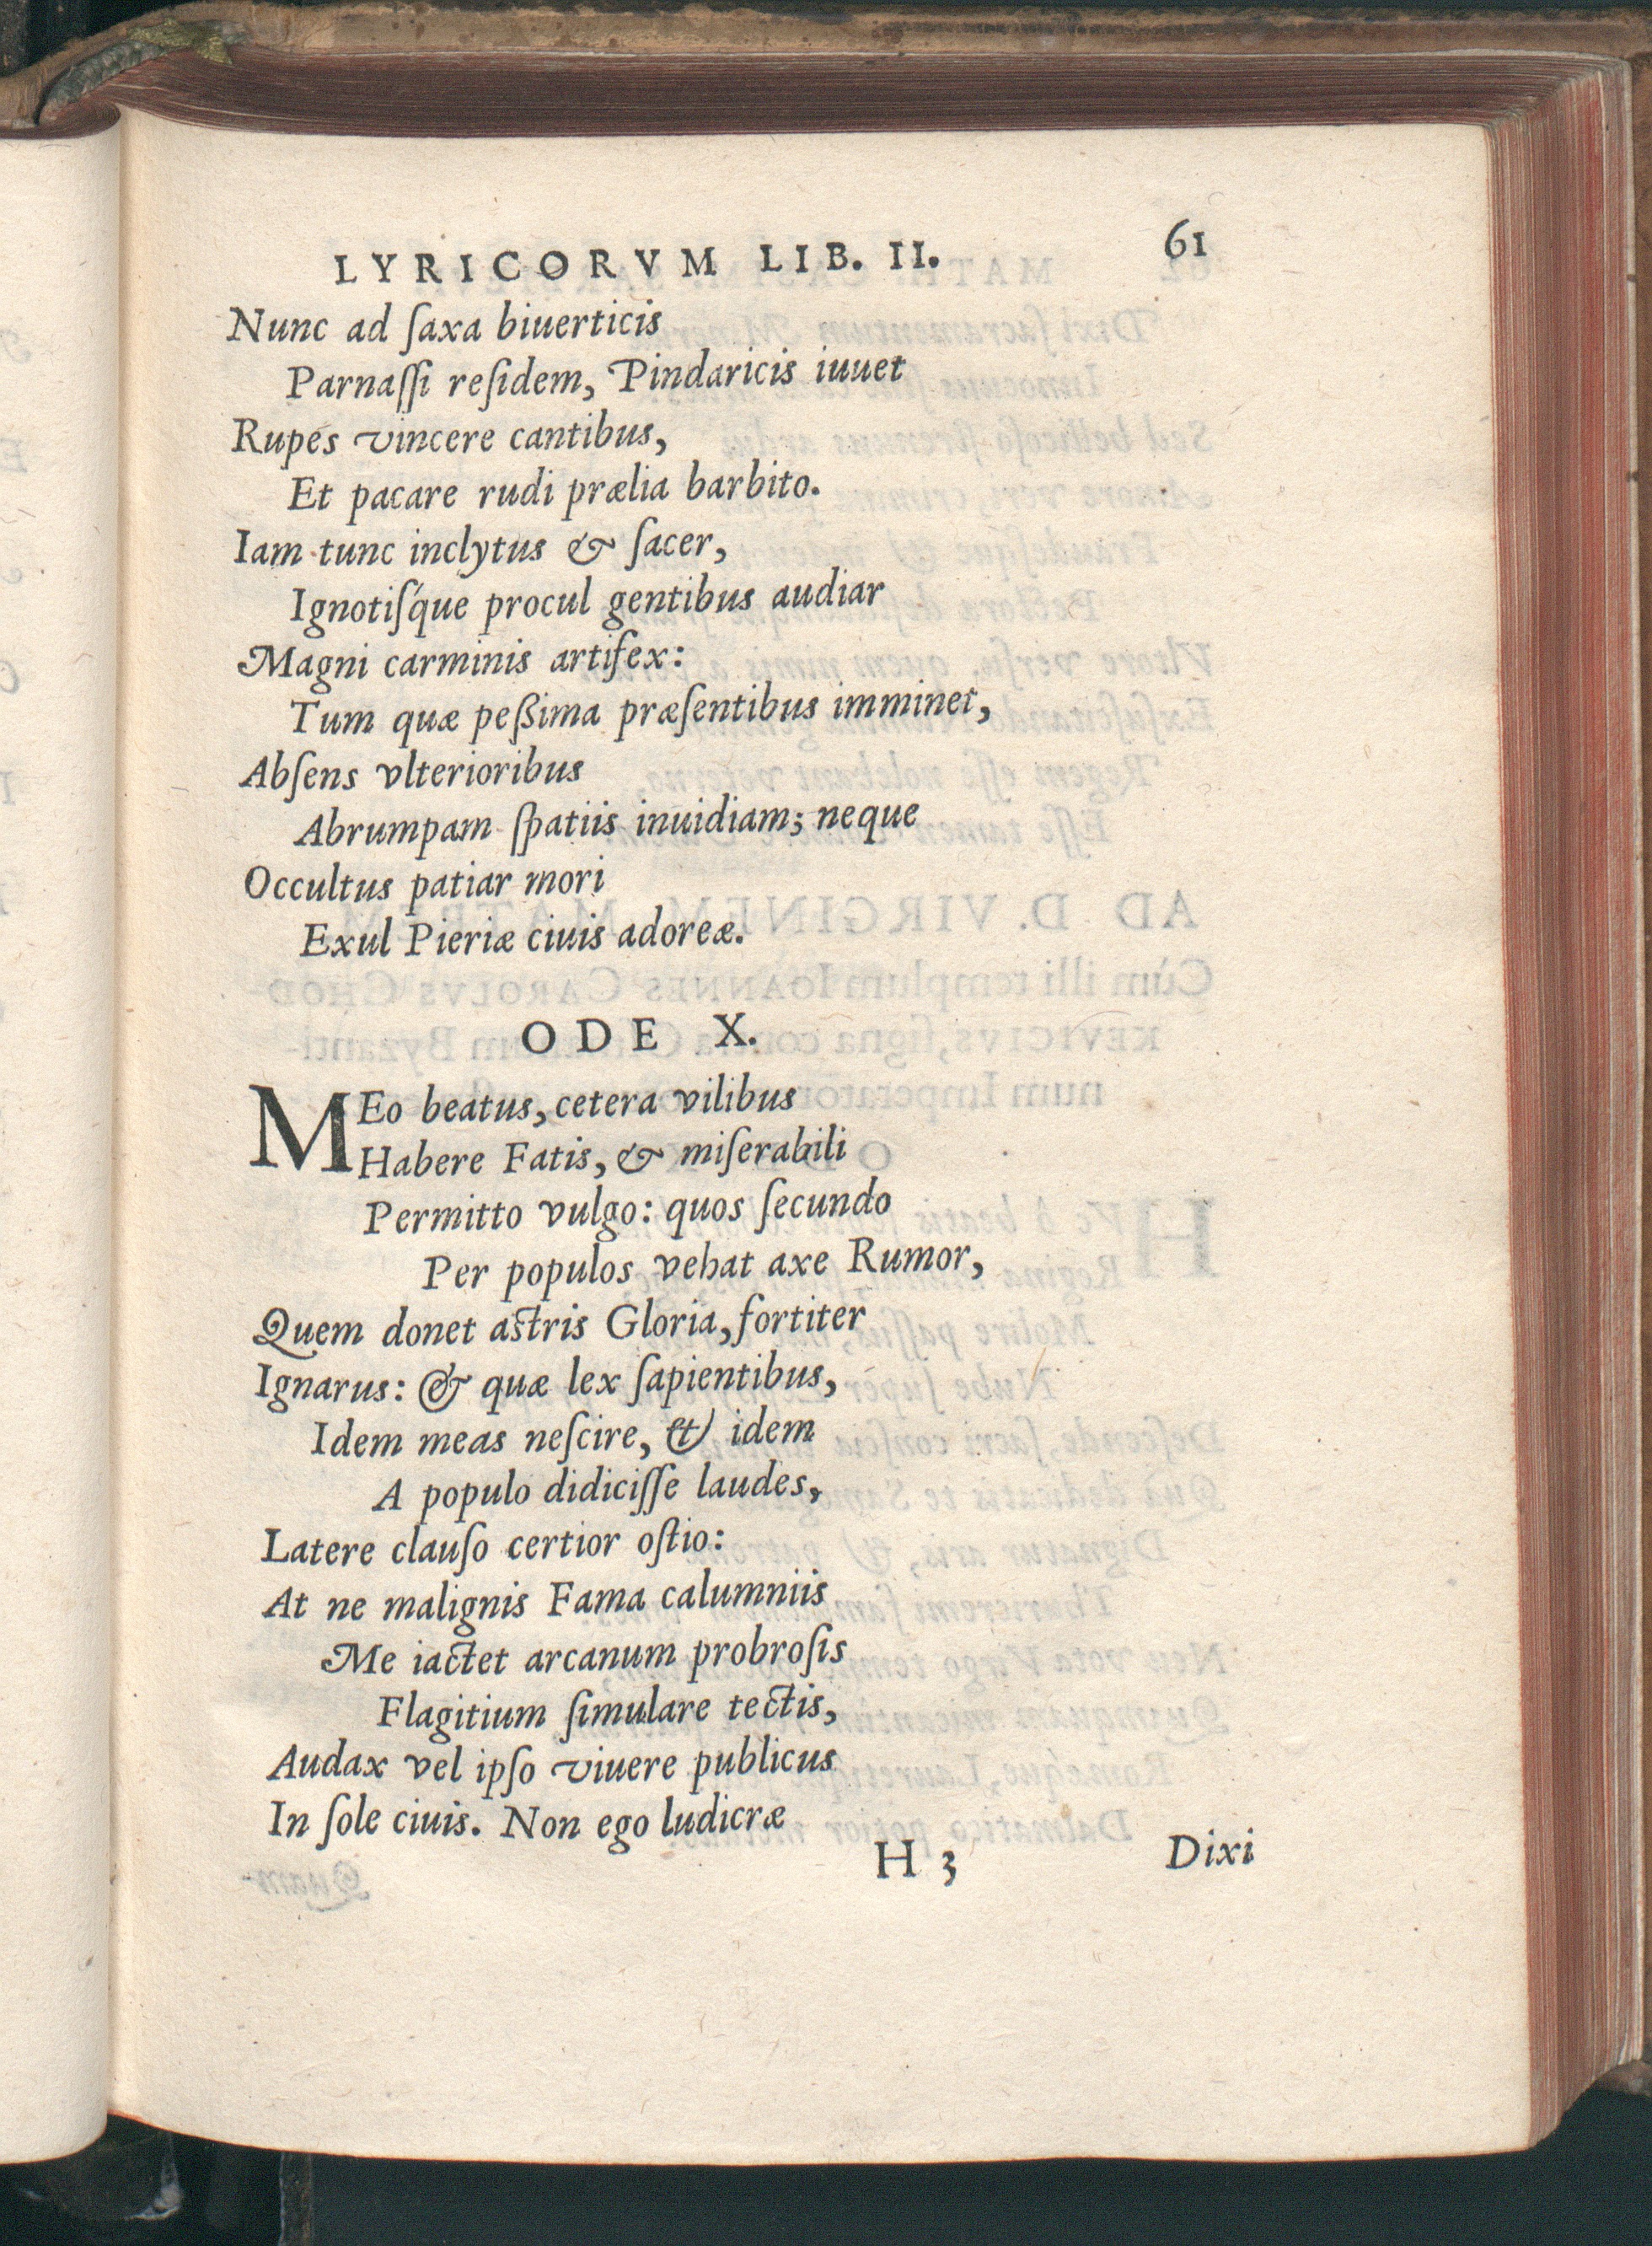 LYRICORVM LIB. II. 61
Nunc ad ſaxa biuerticis
Parnaſſi reſidem, Pindaricis iuuet
Rupes vincere cantibus,
Et pacare rudi prælia barbito.
Iam tunc inclytus & ſacer,
Ignotiſque procul gentibus audiar
Magni carminis artifex:
Tum quæ peßima præſentibus imminet,
Abſens vlterioribus
Abrumpam ſpatiis inuidiam; neque
Occultus patiar mori
Exul Pieriæ ciuis adoreæ.
ODE X.
MEo beatus, cetera vilibus
Habere Fatis, & miſerabili
Permitto vulgo: quos ſecundo
Per populos vehat axe Rumor,
Quem donet aſtris Gloria, fortiter
Ignarus: & quæ lex ſapientibus,
Idem meas neſcire, & idem
A populo didiciſſe laudes,
Latere clauſo certior oſtio:
At ne malignis Fama calumniis
Me iactet arcanum probroſis
Flagitium ſimulare tectis,
Audax vel ipſo viuere publicus
In ſole ciuis. Non ego ludicræ
H 3 Dixi